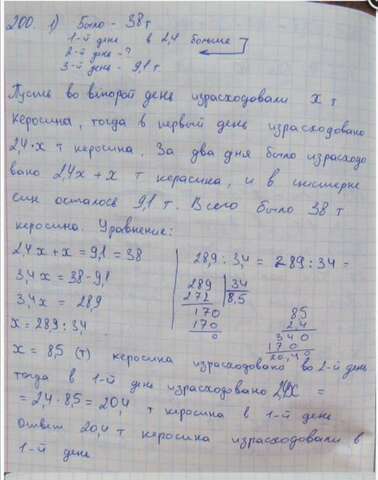 200. 1) Было - 38 т
1-й день в 2,4 больше
2-й день - ?
3-й день - 9,1 т.
Пусть во второй день израсходовали x т
керосина, тогда в первый день израсходовано
2,4·x т керосина. За два дня было израсходо
вано 2,4x + x т керасина, и в цистерне
син осталось 9,1 т. Всего было 38 т
керосина. Уравнение:
2,4x + x = 9,1 = 38
3,4x = 38 - 9,1
3,4x = 28,9
x = 289 : 34
28,9 : 3,4 = 289 : 34 =
289 34
272 8,5
170
170
0
85
2,4
340
170
20,40
x = 8,5 (т) керосина израсходовано во 2-й день
тогда в 1-й день израсходовано 2,4x =
= 2,4 · 8,5 = 20,4 т керосина в 1-й день
Ответ 20,4 т керосина израсходовали в
1-й день